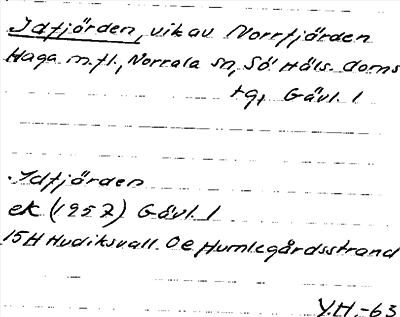 Idfjärden, vik av Norrfjärden
Haga m.fl., Norrala sn, Sö Häls. doms
tg, Gävl. l
Idfjärden
ek (1957) Gävl. l
15H Hudiksvall Oe Humlegårdsstrand
Y.H.-63